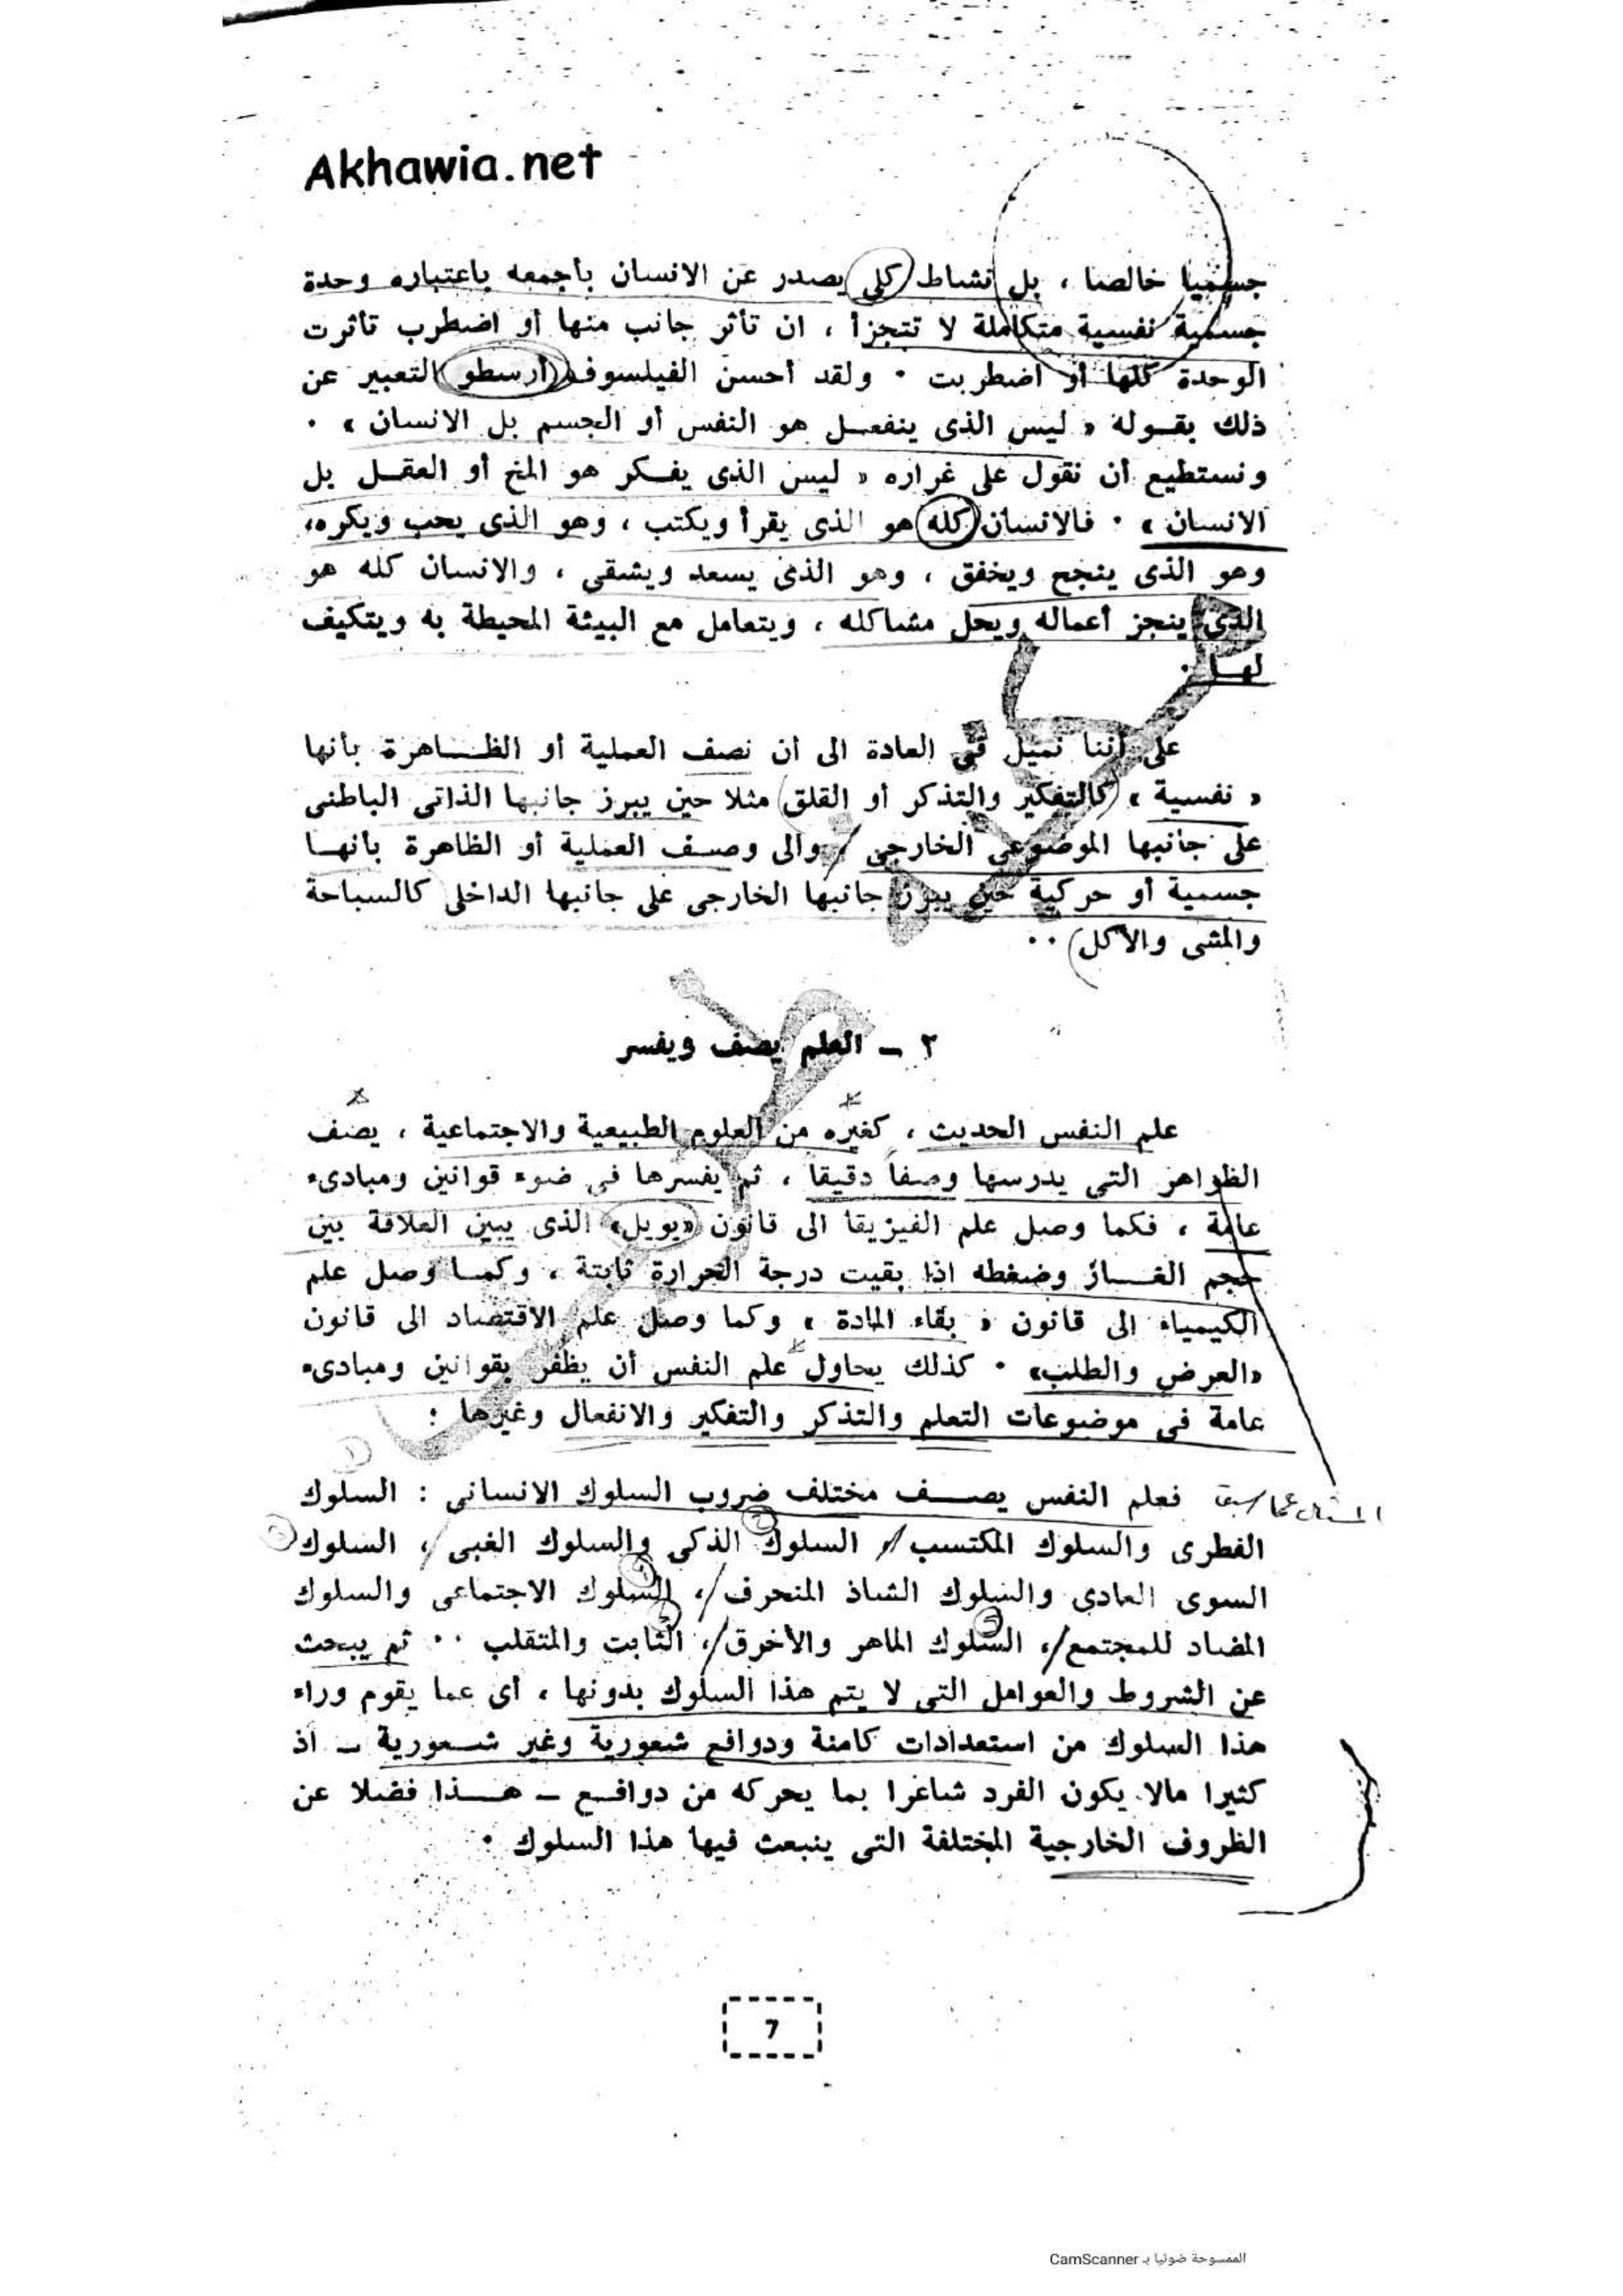 Akhawia.net
جسميا خالصا ، بل نشاط كلى يصدر عن الانسان بأجمعه باعتباره وحدة
جسمية نفسية متكاملة لا تتجزأ ، ان تأثر جانب منها أو اضطرب تأثرت
الوحدة كلها أو اضطربت ٠ ولقد أحسن الفيلسوف أرسطو التعبير عن
ذلك بقوله « ليس الذى ينفعل هو النفس أو الجسم بل الانسان » ٠
ونستطيع أن نقول على غراره « ليس الذى يفكر هو المخ أو العقل بل
الانسان » ٠ فالانسان كله هو الذى يقرأ ويكتب ، وهو الذى يحب ويكره،
وهو الذى ينجح ويخفق ، وهو الذى يسعد ويشقى ، والانسان كله هو
الذى ينجز أعماله ويحل مشاكله ، ويتعامل مع البيئة المحيطة به ويتكيف
لها ٠
على أننا نميل فى العادة الى أن نصف العملية أو الظاهرة بأنها
« نفسية » كالتفكير والتذكر أو القلق مثلا حين يبرز جانبها الذاتى الباطنى
على جانبها الموضوعى الخارجى ، والى وصف العملية أو الظاهرة بأنها
جسمية أو حركية حين يبرز جانبها الخارجى على جانبها الداخلى كالسباحة
والمشى والأكل ٠٠
٢ - العلم يصف ويفسر
علم النفس الحديث ، كغيره من العلوم الطبيعية والاجتماعية ، يصف
الظواهر التى يدرسها وصفا دقيقا ، ثم يفسرها فى ضوء قوانين ومبادىء
عامة ، فكما وصل علم الفيزيقا الى قانون «بويل» الذى يبين العلاقة بين
حجم الغاز وضغطه اذا بقيت درجة الحرارة ثابتة ، وكما وصل علم
الكيمياء الى قانون « بقاء المادة » وكما وصل علم الاقتصاد الى قانون
«العرض والطلب» ٠ كذلك يحاول علم النفس أن يظفر بقوانين ومبادىء
عامة فى موضوعات التعلم والتذكر والتفكير والانفعال وغيرها :
فعلم النفس يصف مختلف ضروب السلوك الانسانى : السلوك
الفطرى والسلوك المكتسب ، السلوك الذكى والسلوك الغبى ، السلوك
السوى العادى والسلوك الشاذ المنحرف ، السلوك الاجتماعى والسلوك
المضاد للمجتمع ، السلوك الماهر والأخرق ، الثابت والمتقلب ٠٠ ثم يبحث
عن الشروط والعوامل التى لا يتم هذا السلوك بدونها ، أى عما يقوم وراء
هذا السلوك من استعدادات كامنة ودوافع شعورية وغير شعورية - اذ
كثيرا مالا يكون الفرد شاعرا بما يحركه من دوافع - هذا فضلا عن
الظروف الخارجية المختلفة التى ينبعث فيها هذا السلوك ٠
7
الممسوحة ضوئيا بـ CamScanner